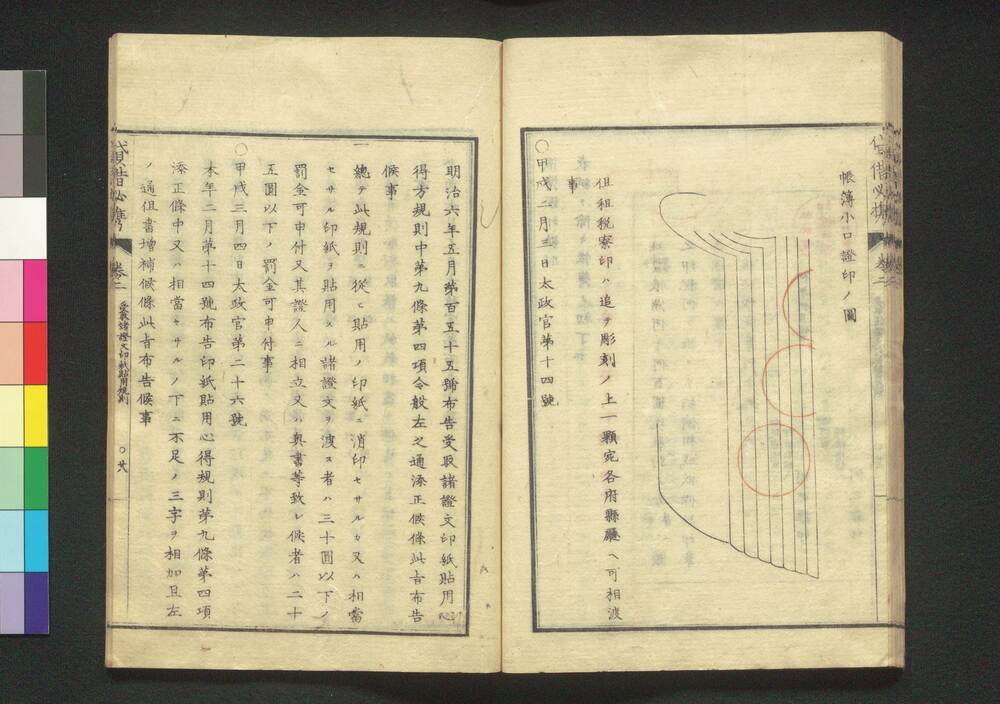 帳簿小口證印ノ圖
但租税寮印ハ追テ彫刻ノ上一顆宛各府縣廳ヘ可相渡
事
○甲戌二月三日太政官第十四號
明治六年五月第百五十五號布告受取諸證文印紙貼用心
得方規則中第九條第四項令般左之通添正候條此旨布告
候事
一總テ此規則ニ從ヒ貼用ノ印紙ニ消印セサルカ又ハ相當
セサル印紙ヲ貼用スル諸證文ヲ渡ス者ハ三十圓以下ノ
罰金可申付又其證人ニ相立又ハ奥書等致シ候者ハ二十
五圓以下ノ罰金可申付事
○甲戌三月四日太政官第二十六號
本年二月第十四號布告印紙貼用心得規則第九條第四項
添正條中又ハ相當セサルノ下ニ不足ノ三字ヲ相加且左
ノ通但書増補候條此旨布告候事
貸借必携 卷二 受取諸證文印紙貼用規則 ○廿